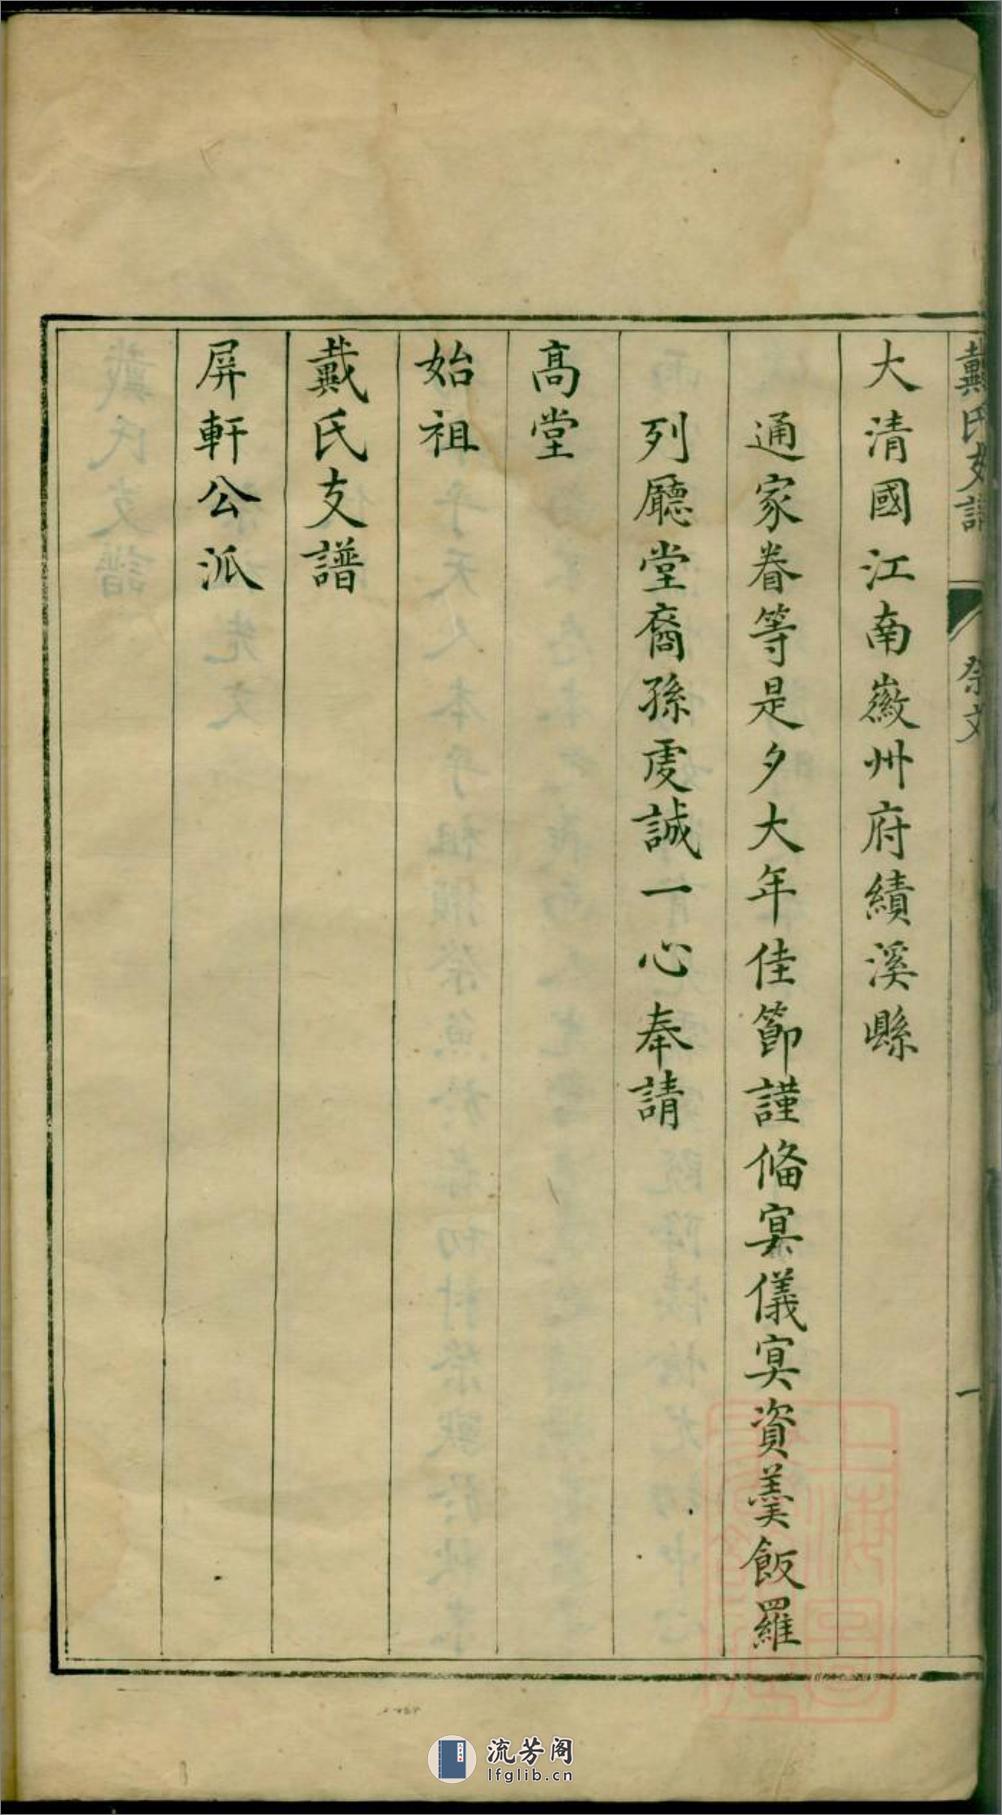 戴氏支譜
祭文
一
大清國江南徽州府績溪縣
通家眷等是夕大年佳節謹俻㝠儀㝠資羮飯羅
列廳堂裔孫虔誠一心奉請
高堂
始祖
戴氏支譜
屏軒公派
流芳阁
lfglib.cn